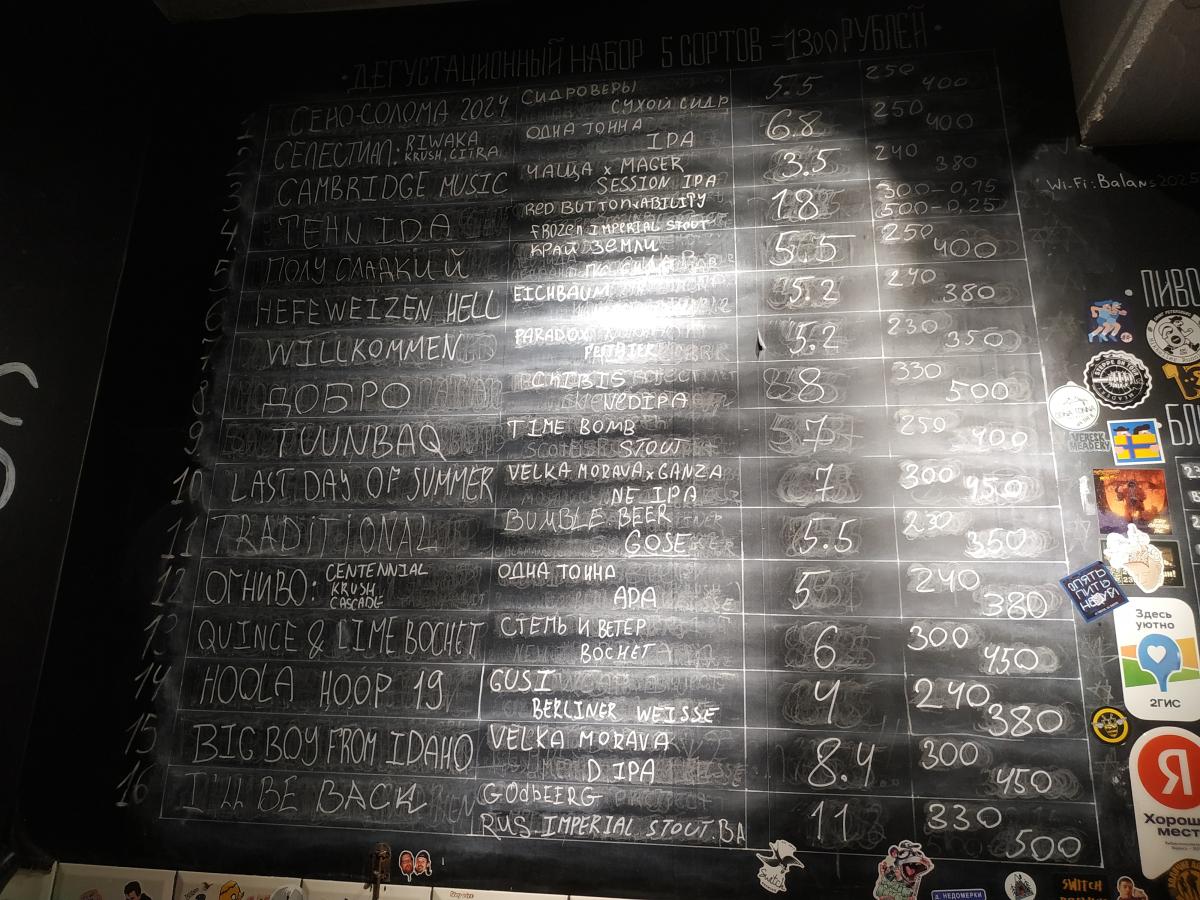 ДЕГУСТАЦИОННЫЙ НАБОР 5 СОРТОВ =1300 РУБЛЕЙ
1 СЕНО-СОЛОМА 2024 СИДРОВЕРЫ СУХОЙ СИДР 5.5 250 400
2 СЕЛЕСТИАЛ: RIWAKA KRUSH, CITRA ОДНА ТОННА IPA 6.8 250 400
3 CAMBRIDGE MUSIC ЧАЩА x MAGER SESSION IPA 3.5 240 380
4 RED BUTTON x ABILITY FROZEN IMPERIAL STOUT 18 300-0,15 500-0,25
5 ПОЛУСЛАДКИЙ КРАЙ ЗЕМЛИ 5.5 250 400
6 HEFEWEIZEN HELL EICHBAUM 5.2 240 380
7 WILLKOMMEN PARADOX 5.2 230 350
8 ДОБРО NEDIPA 8 330 500
9 TUUNBAQ TIME BOMB STOUT 7 250 400
10 LAST DAY OF SUMMER VELKA MORAVA x GANZA NE IPA 7 300 450
11 TRADITIONAL BUMBLE BEER GOSE 5.5 230 350
12 ОГНИВО: CENTENNIAL KRUSH CASCADE ОДНА ТОННА APA 5 240 380
13 QUINCE & LIME BOCHET СТЕПЬ И ВЕТЕР BOCHET 6 300 450
14 HOOLA HOOP 19 GUSI BERLINER WEISSE 4 240 380
15 BIG BOY FROM IDAHO VELKA MORAVA D IPA 8.4 300 450
16 I'LL BE BACK GODBEERG RUS. IMPERIAL STOUT BA 11 330 500
Wi-Fi: Balans2025
ПИВО
STEPPE EN TOUR
VERESK MEADERY
ОПЯТЬ ПИТЬ
Здесь
уютно
2ГИС
Я
Хорош
мест
Switch
д. НЕДОМЕРКИ
SWITCH